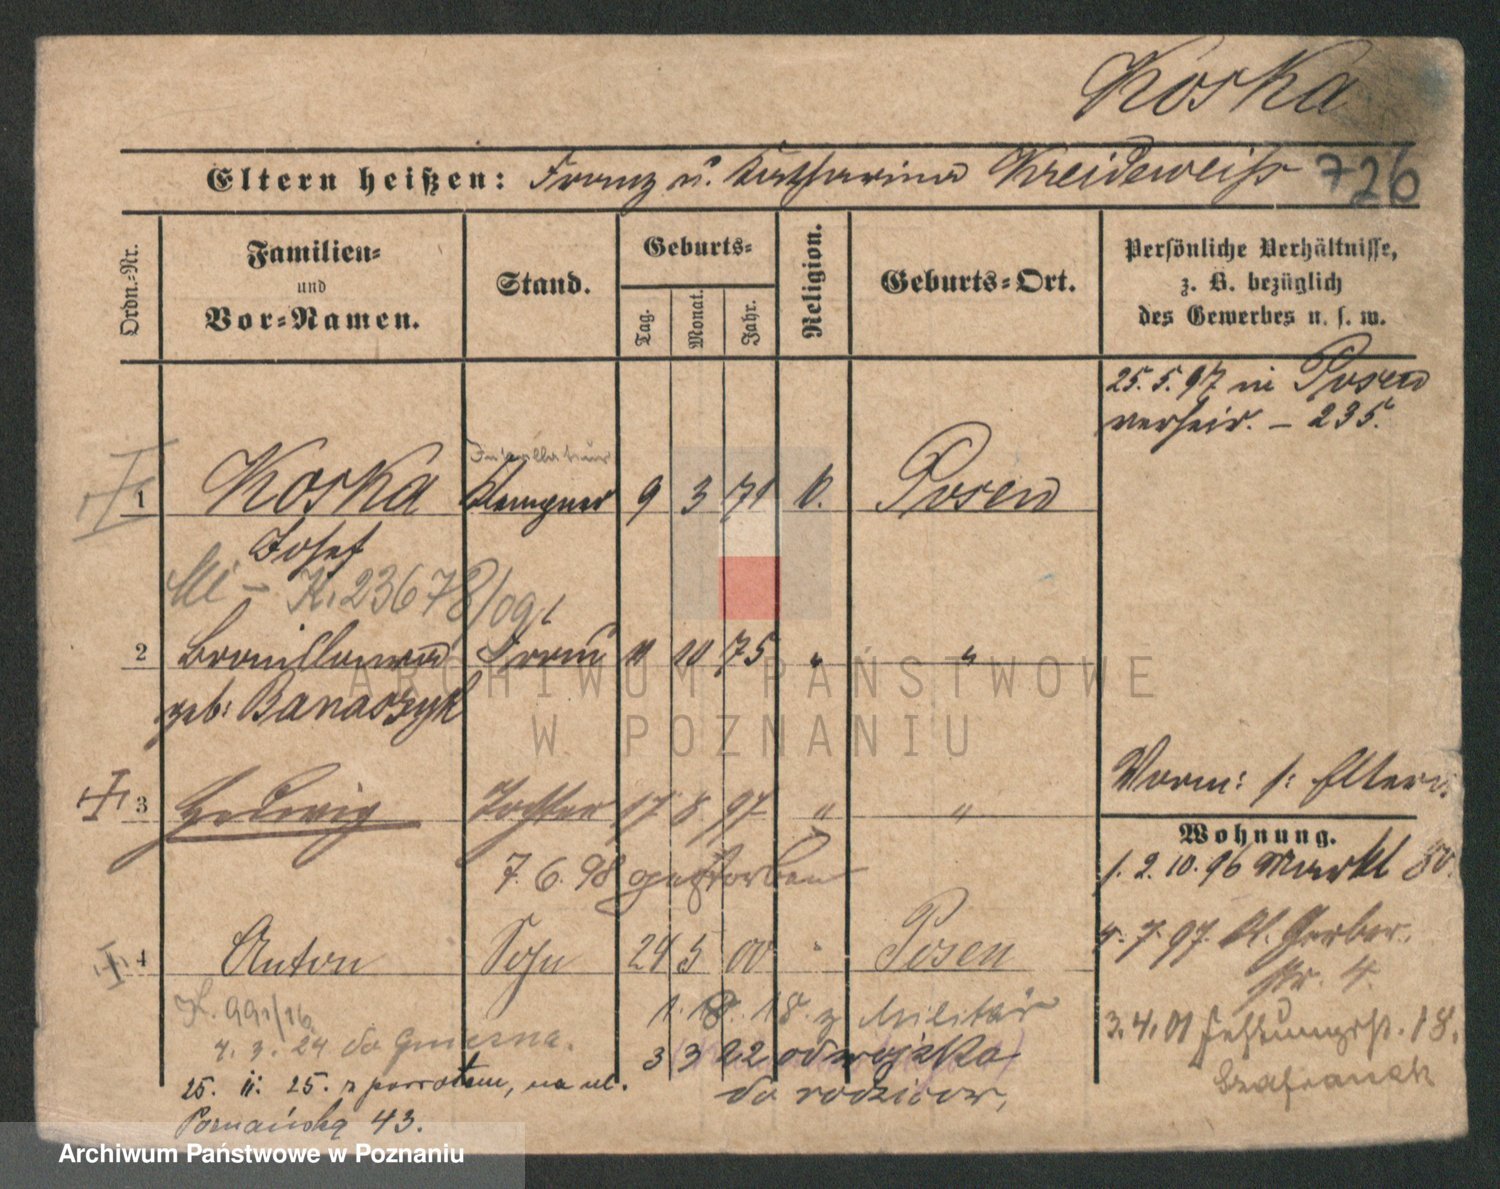 Koska
Eltern heißen: Franz u. Katharina Kreideweiss 726
Ordn.-Nr.
Familien-
und
Vor-Namen.
Stand.
Geburts-
Tag.
Monat.
Jahr.
Religion.
Geburts-Ort.
Persönliche Verhältnisse,
z. B. bezüglich
des Gewerbes u. s. w.
25.5.97 in Posen
verheir. – 235.
1 Koska Klempner 9 3 71 k. Posen
Josef
K. 23678/09
2 Bronislawa Frau 11 10 75 " "
geb: Banaszyk
Vorm: s: Eltern
3 Hedwig Tochter 17 8 97 " "
Wohnung.
1. 2.10.96 Markt 80.
7.6.98 gestorben
4.7.97 Kl. Gerber
str. 4.
4 Anton Sohn 24 5 00 " Posen
K. 991/16
1. 18. 18. z Militär
3.4.01 Festungsst. 18.
Szafranek
4. 3. 24 do Gniezna.
3 3 22 od wojska
do rodziców,
25. II. 25. z powrotem, na ul.
Poznańską 43.
ARCHIWUM PAŃSTWOWE
W POZNANIU
Archiwum Państwowe w Poznaniu